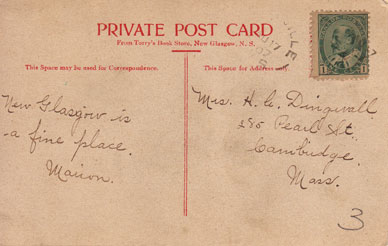 PRIVATE POST CARD
From Torry's Book Store, New Glasgow, N. S.
This Space may be used for Correspondence.
This Space for Address only.
New Glasgow is
a fine place.
Marion.
Mrs. H. C. Dingwall
285 Pearl St.
Cambridge.
Mass.
3